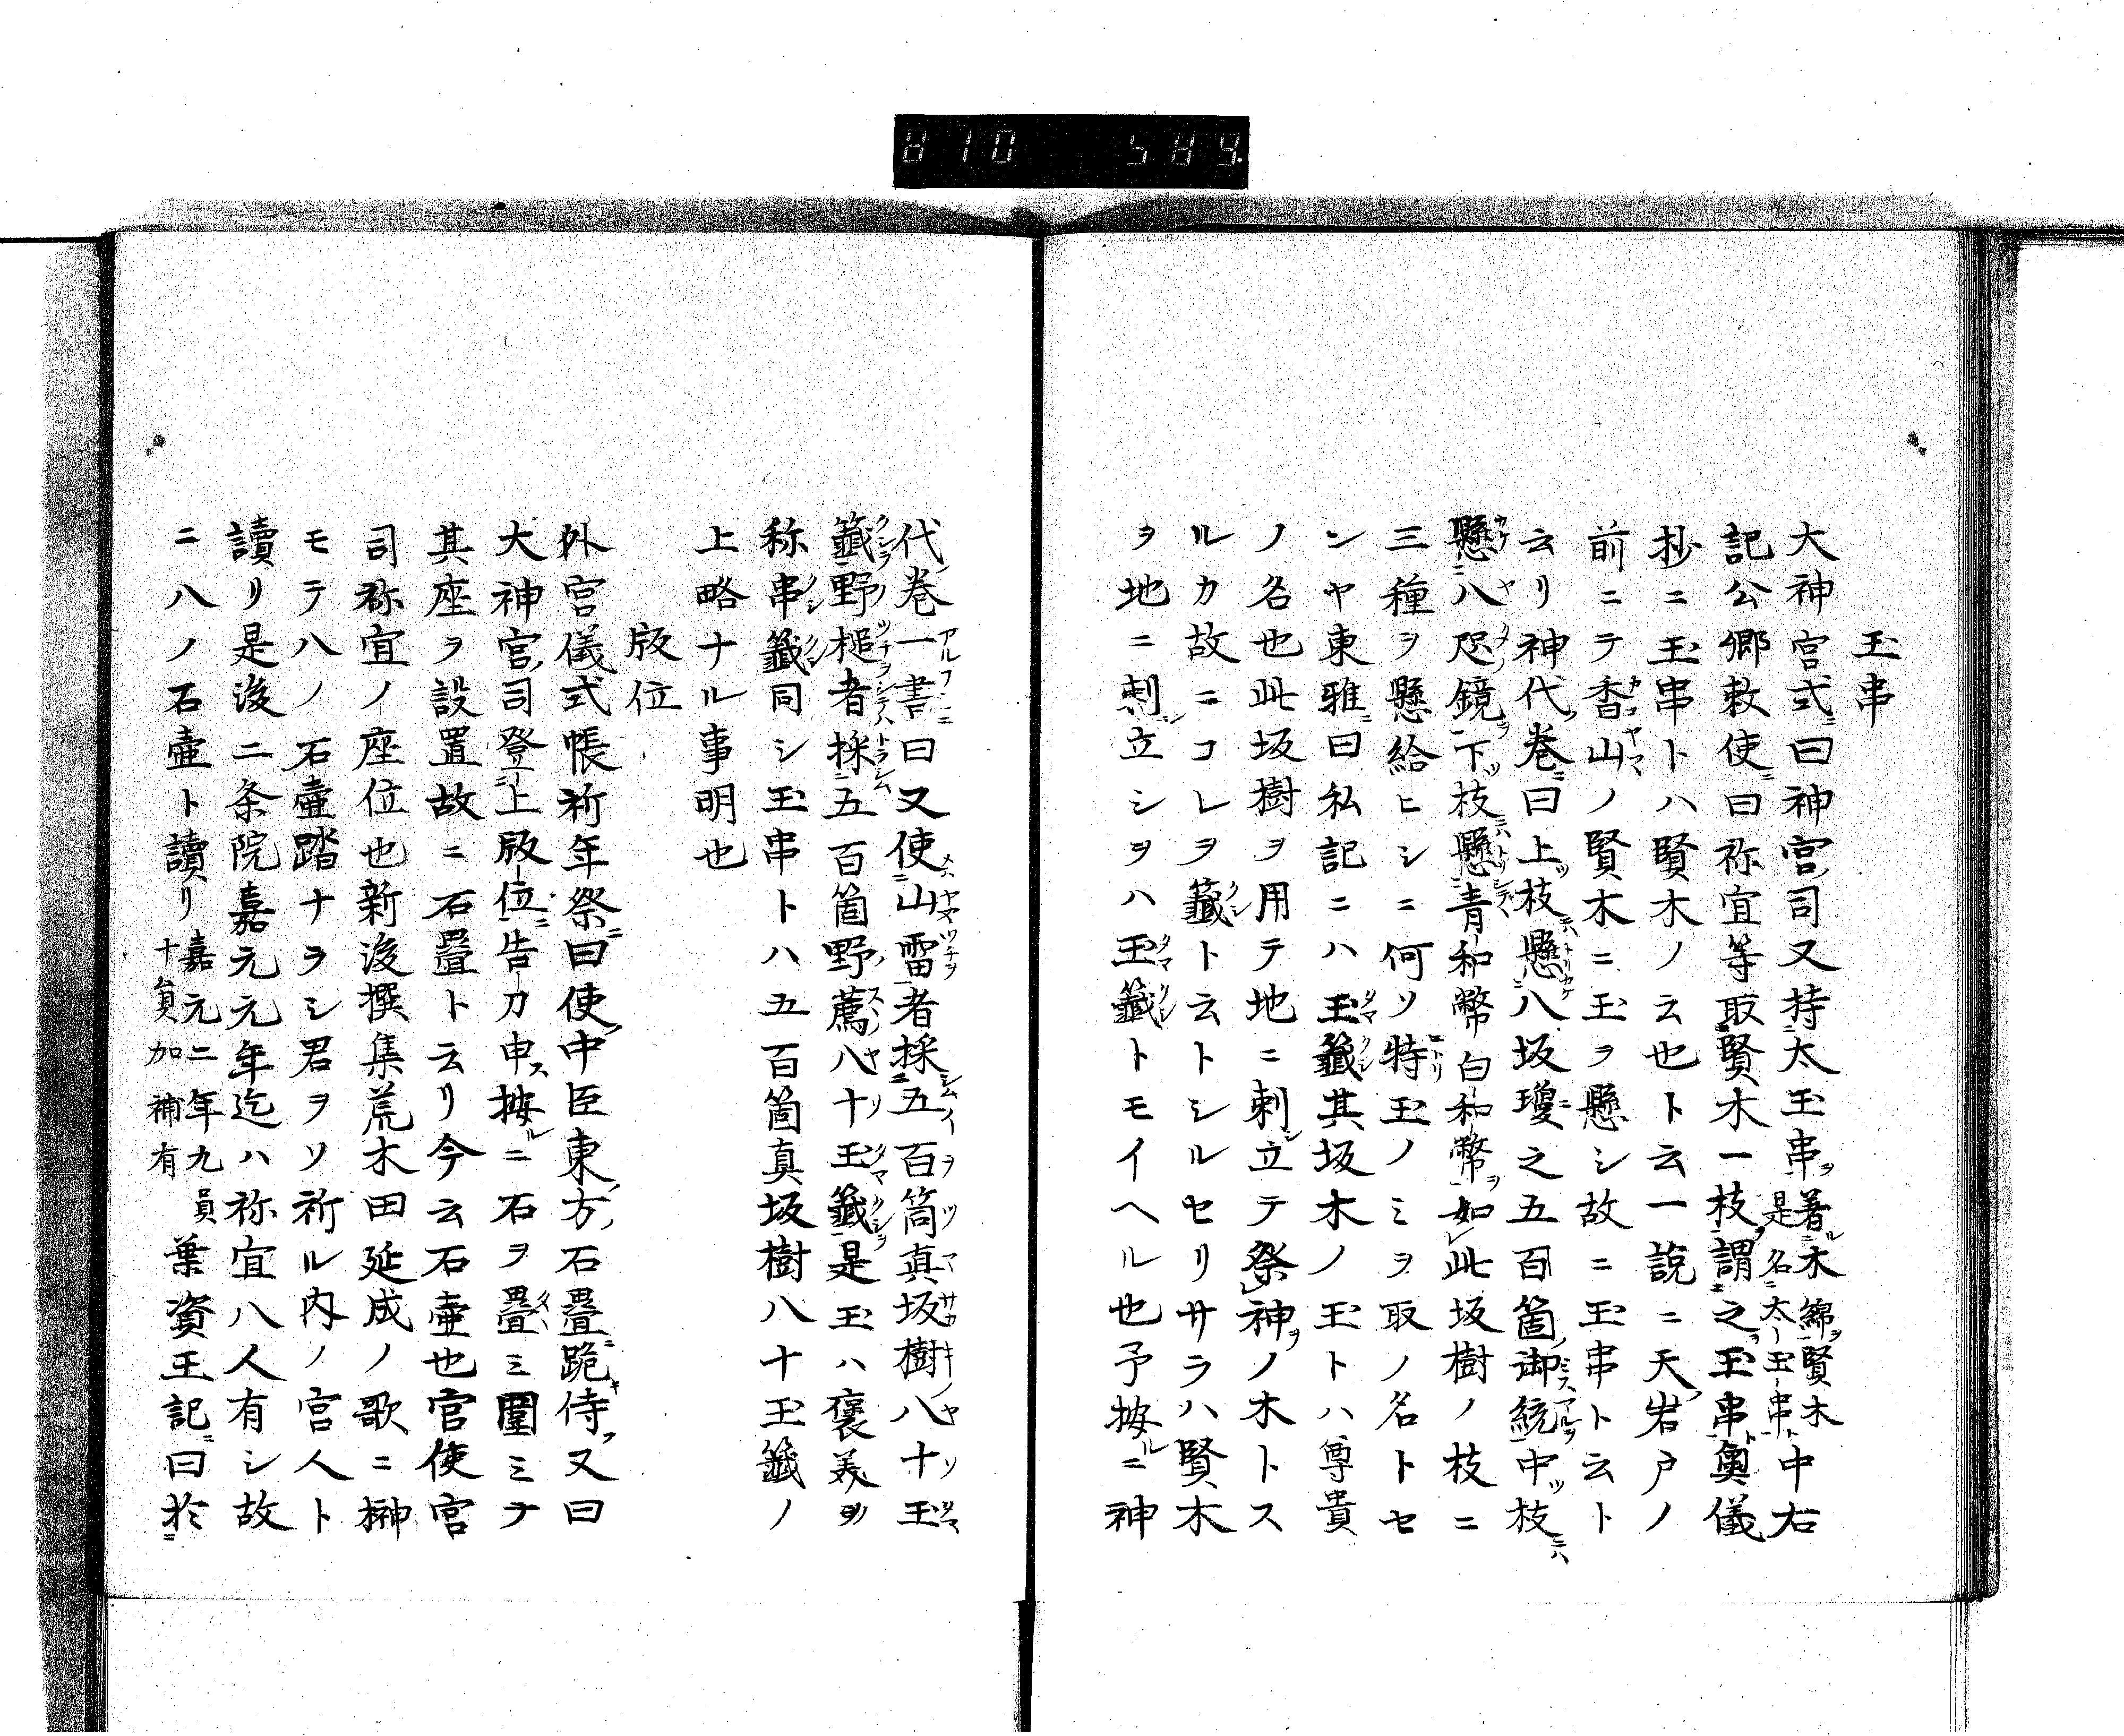 810 589
玉串
大神宮式ニ曰神宮司又持太玉串ヲ著ル木綿ヲ賢木是名ニ太玉串ト中右
記公卿敕使ニ曰祢宜等取賢木一枝ヲ謂之ヲ玉串ト奥儀
抄ニ玉串トハ賢木ノ云也ト云一説ニ天ノ岩戸ノ
前ニテ香山ノ賢木ニ玉ヲ懸シ故ニ玉串ト云ト
云リ神代ノ巻ニ曰上ツ枝ニハ懸八坂瓊之五百箇ノ御統ヲ中ツ枝ニハ
懸八咫鏡ヲ下ツ枝ニハ懸青和幣白和幣ヲ如此坂樹ノ枝ニ
三種ヲ懸給ヒシニ何ソ特玉ノミヲ取ノ名トセ
ンヤ東雅ニ曰私記ニハ玉籤其坂木ノ玉トハ尊貴
ノ名也此坂樹ヲ用テ地ニ刺シ立テ祭神ヲノ木トス
ルカ故ニコレヲ籤ト云トシルセリサラハ賢木
ヲ地ニ刺シ立シヲハ玉籤トモイヘル也予按ルニ神
代ノ巻一書ニ曰又使山雷者採五百箇真坂樹八十玉
籤野槌者採五百箇野薦八十玉籤是玉ハ褒美ヲ
称串籤同シ玉串トハ五百箇真坂樹八十玉籤ノ
上略ナル事明也
版位
外宮儀式帳祈年祭ニ曰使中臣東ノ方ノ石疊ニ跪侍フ又曰
大神宮ノ司登上版位ニ告刀申ス按ルニ石ヲ疊ミ圍ミテ
其座ヲ設置故ニ石疊ト云リ今云石壷也官使宮
司祢宜ノ座位也新後撰集荒木田延成ノ歌ニ榊
モテハノ石壷踏ナラシ君ヲソ祈ル内ノ宮人ト
讀リ是後二条院嘉元元年迄ハ祢宜八人有シ故
ニ八ノ石壷ト讀リ嘉元二年九員十員加補有葉資王記ニ曰於